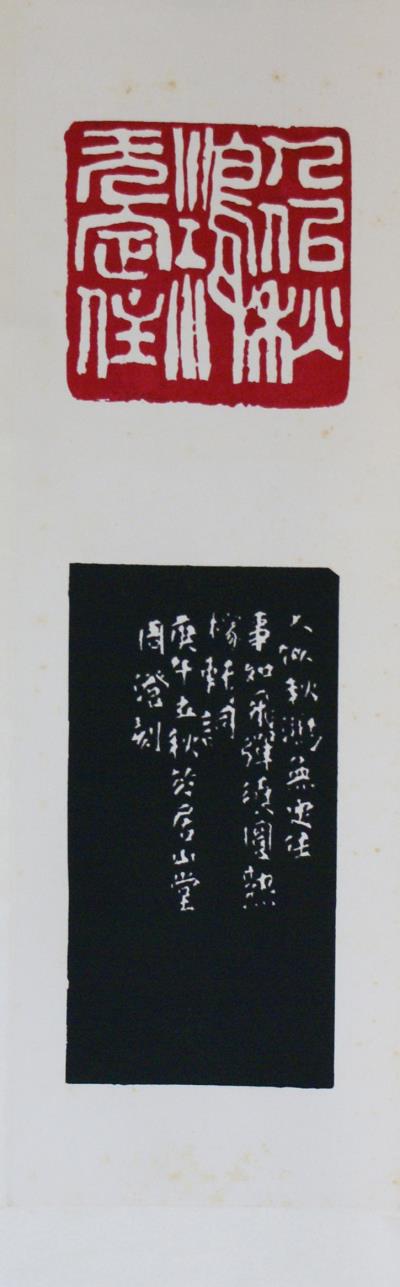 人佀秋
鴻
无定住
人似秋鴻無定住
事如飛彈須圓熟
稼軒詞
庚午立秋於居山堂
周澄刻